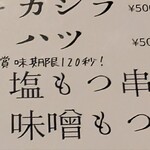 カシラ ¥50
ハツ ¥50
賞味期限120秒!
塩もつ串
味噌もつ